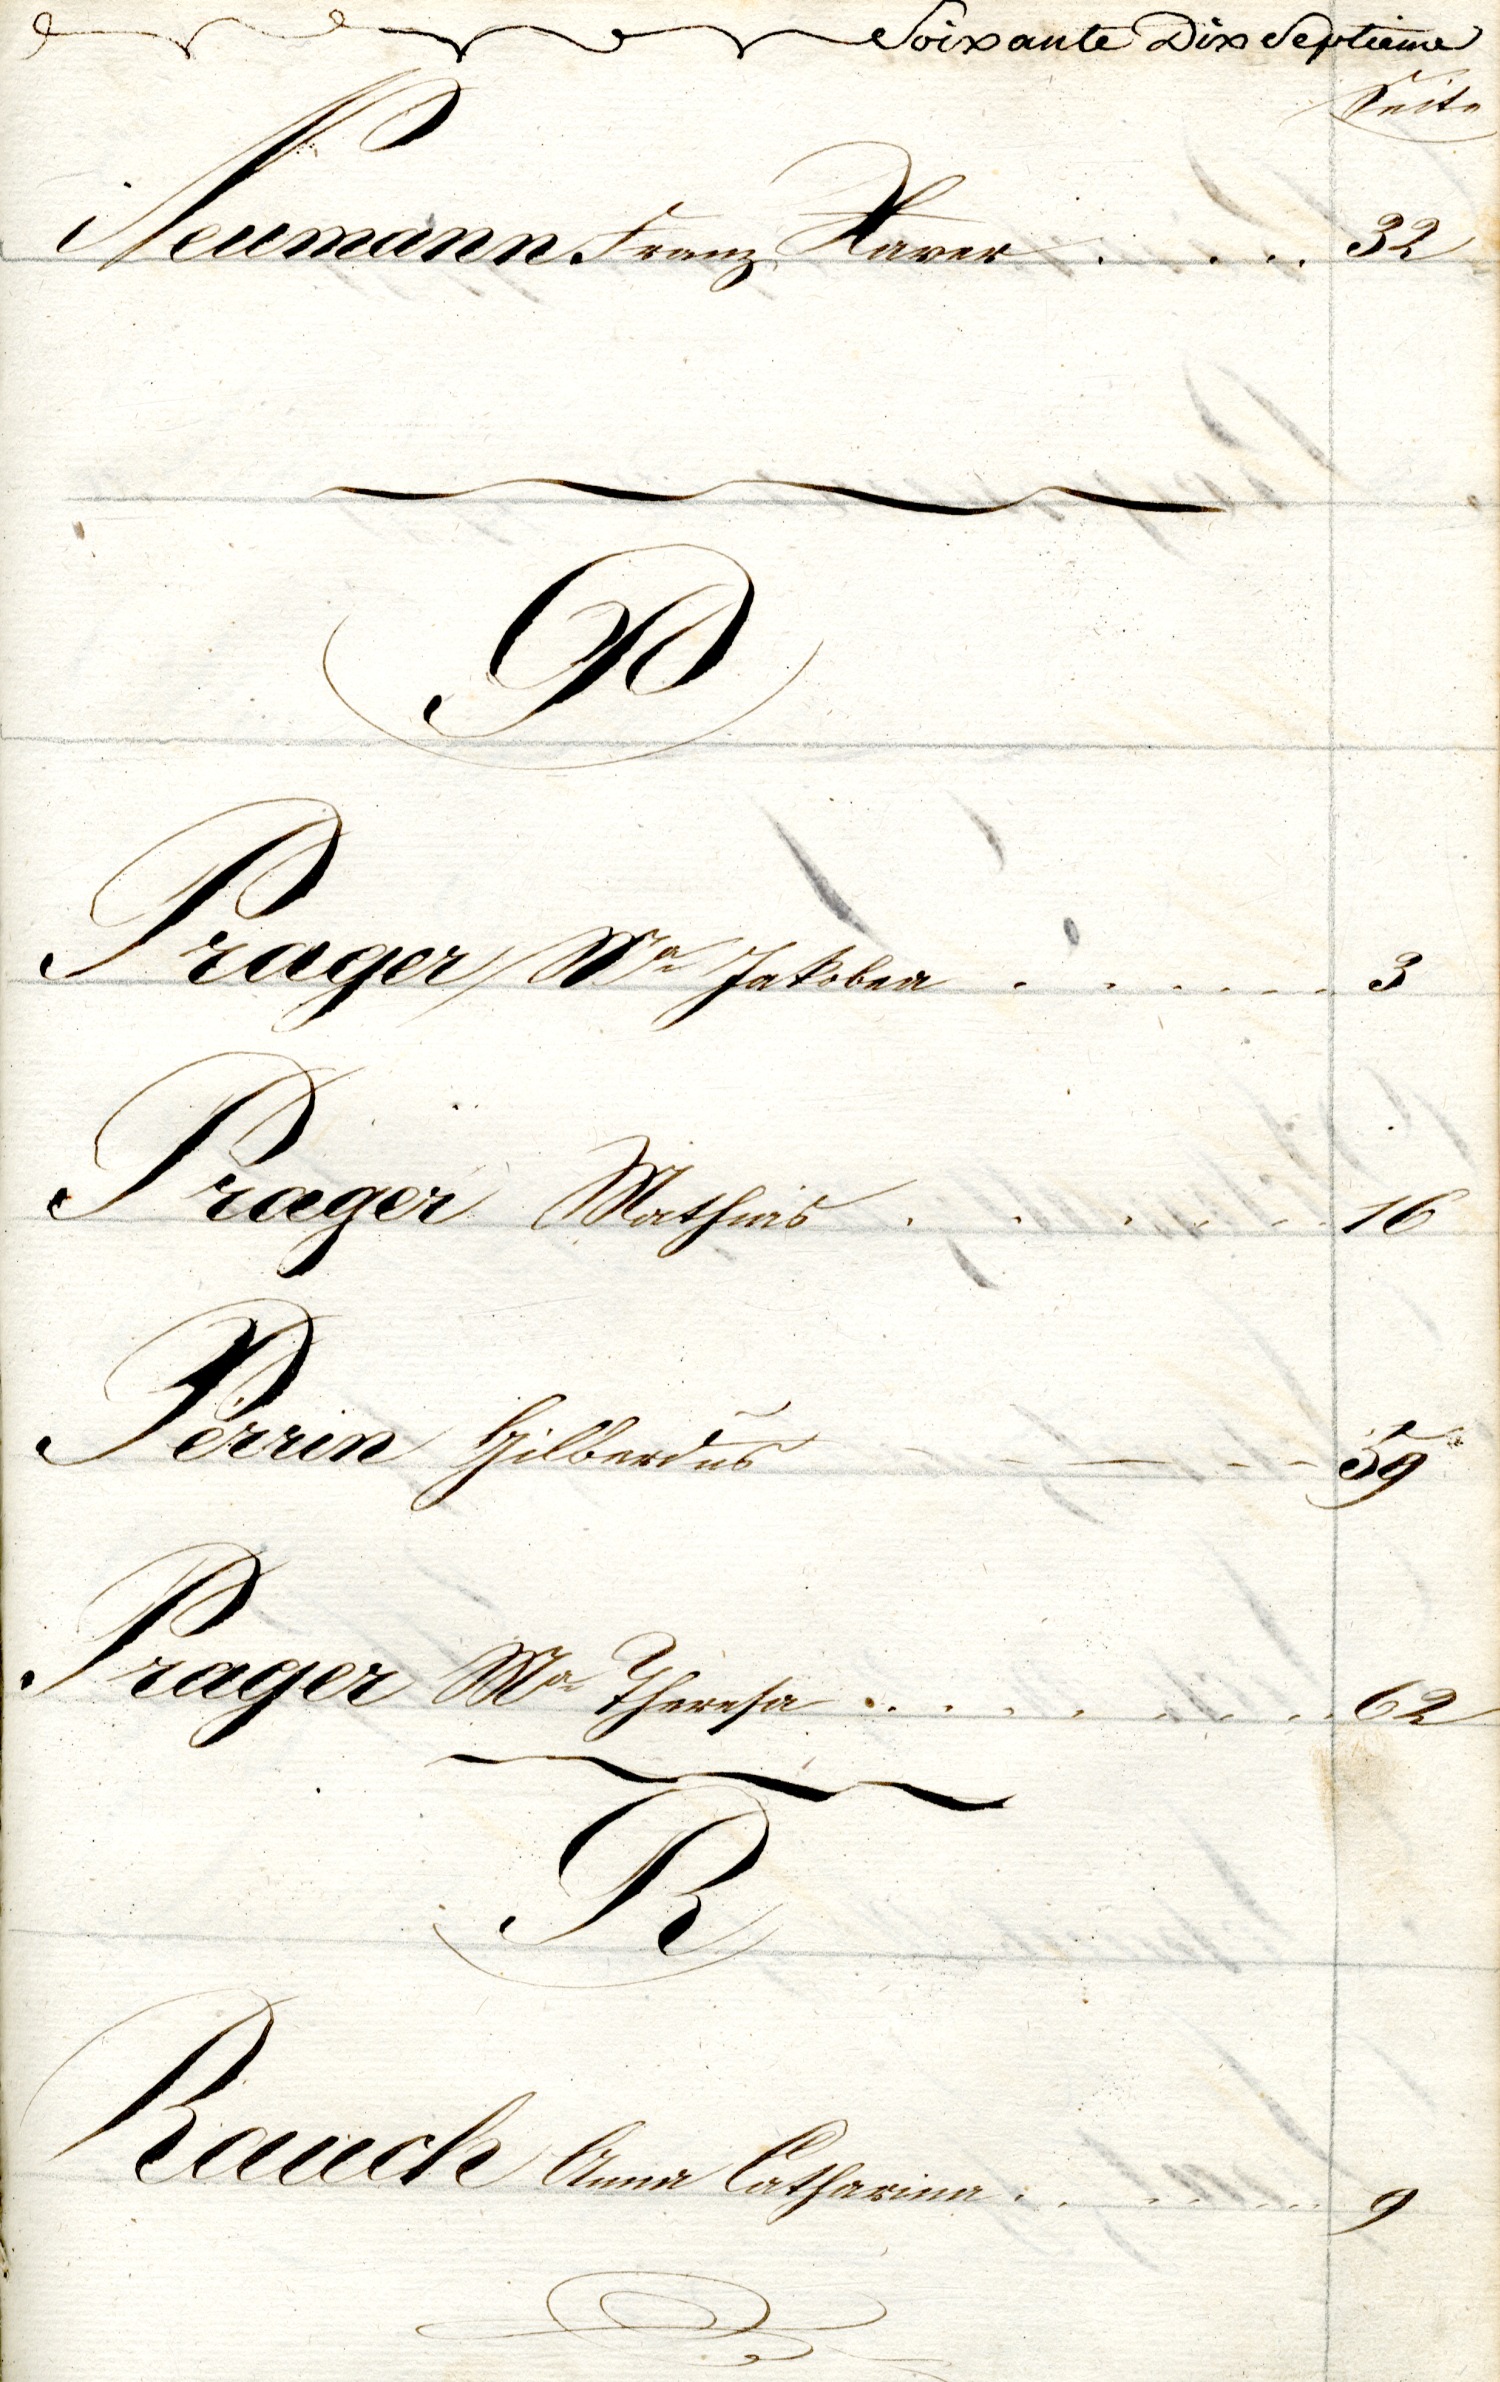 Soixante Dix Septieme
Seite
Neumann Franz Xaver . . . . 32
P
Prager Ma Jakobea . . . . . . 3
Prager Mathias . . . . . . 16
Perrin Gilberdus 59
Prager Ma Theresa . . . . . . . . 62
R
Rauch Anna Catharina . . . . . . 9